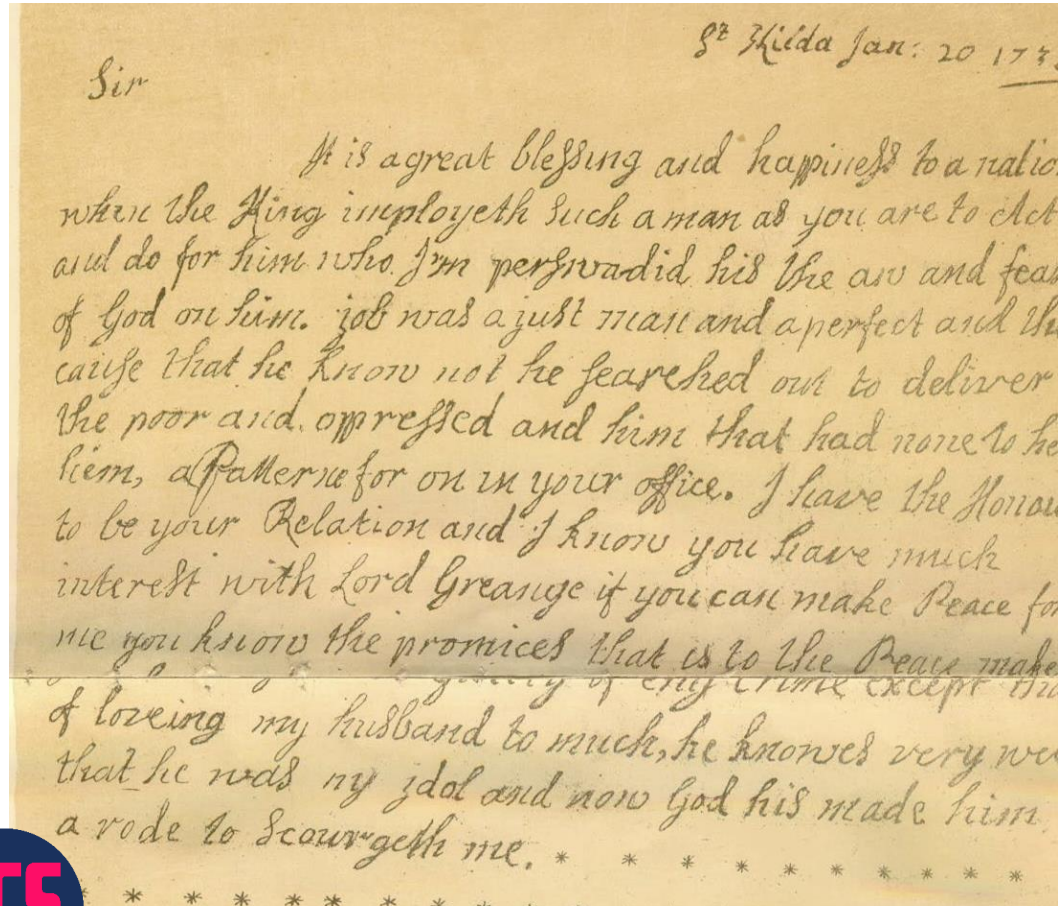 St Kilda Jan: 20 173
Sir
It is a great blessing and happiness to a natio
when the King imployeth such a man as you are to Act
and do for him who I'm perswadid his the aw and fear
of God on him. job was a just man and a perfect and the
cause that he know not he searched out to deliver
the poor and oppressed and him that had none to he
hiem, a Patterne for on in your office. I have the Honou
to be your Relation and I know you have much
interest with Lord Greange if you can make Peace for
me you know the promices that is to the Peace make
guilty of eny crime except thi
of loveing my husband to much, he knowes very we
that he was my idol and now God his made him
a rode to Scourgeth me. * * * * * * * * *
* * * * * * * * *
TS